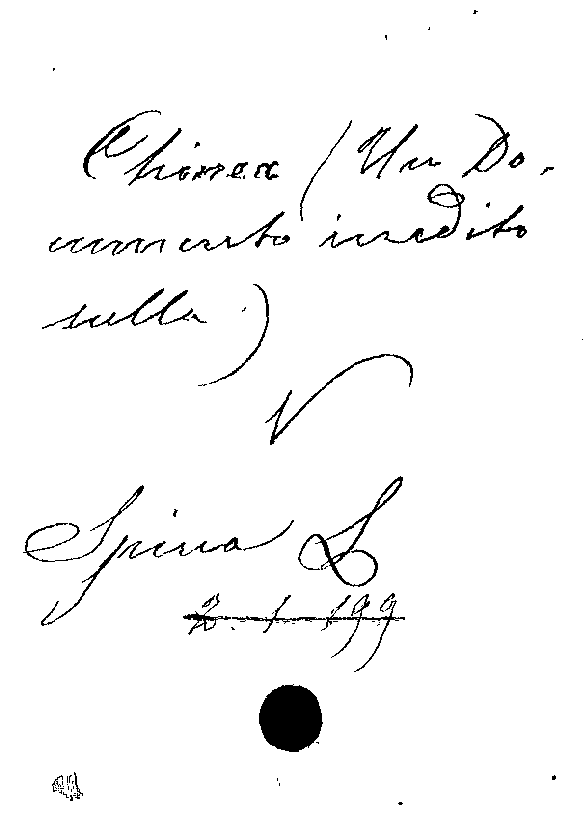 Chinea (Un Do-
cumento inedito
sulla)
V
Spina L
2. 1. 199